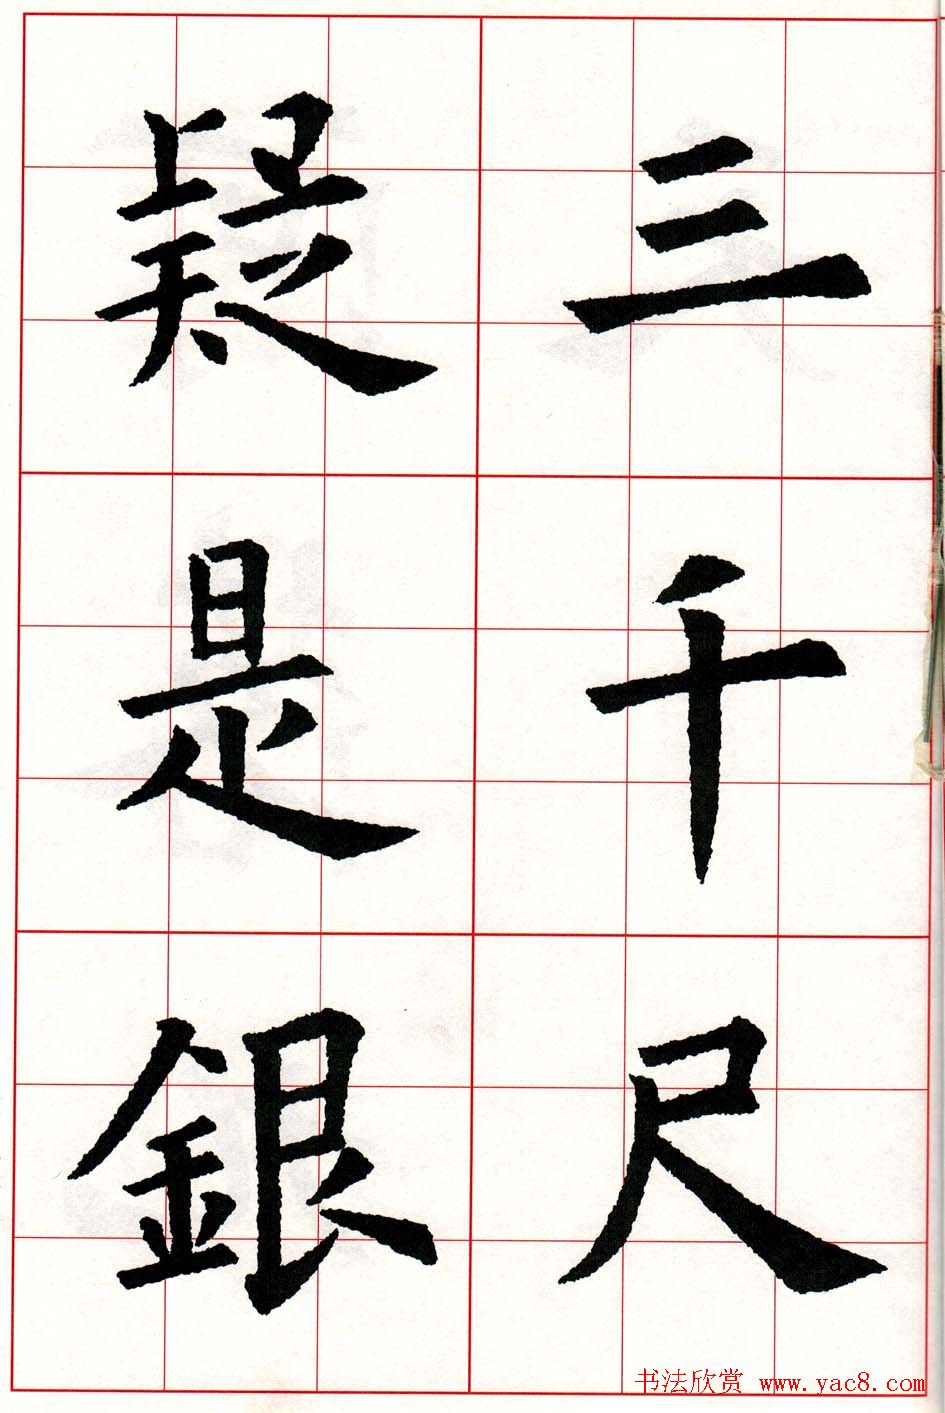 三千尺
疑是銀
书法欣赏 www.yac8.com